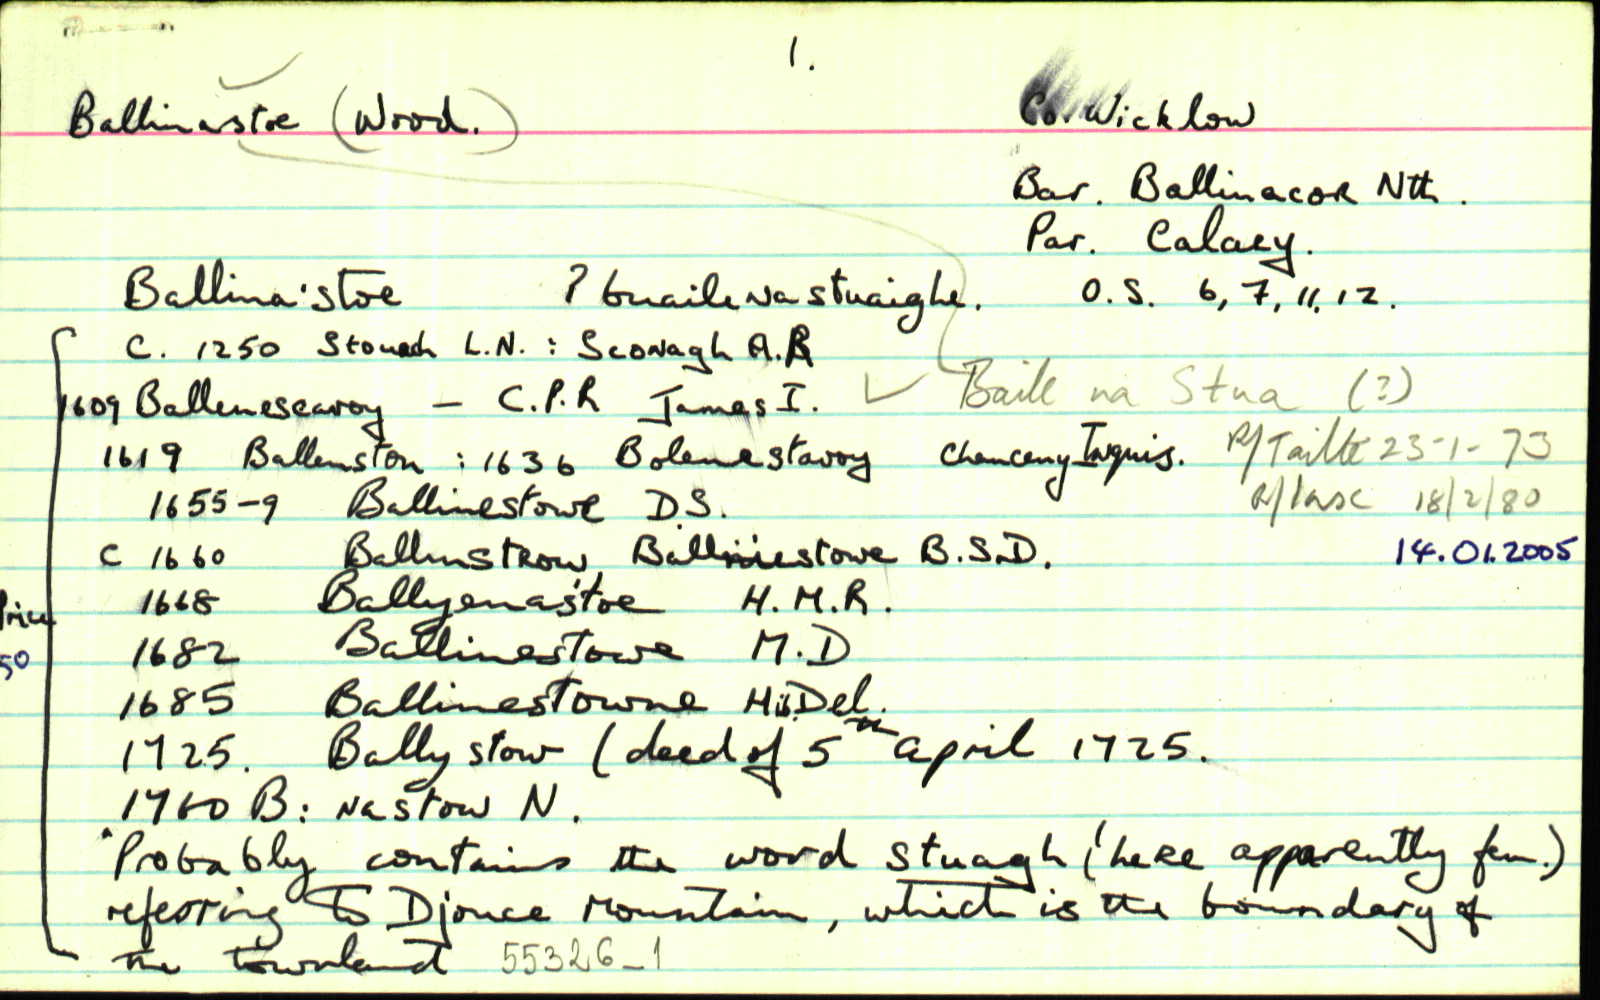 1.
Ballinastoe (Wood.)
Co. Wicklow
Bar. Ballinacor Nth.
Par. Calary.
Ballina'stoe ? buaile na stuaighe. O.S. 6, 7, 11, 12.
C. 1250 Stouach L.N. : Sconagh A.R
1609 Ballenescavoy — C.P.R James I. ✓ Baile na Stua (?)
1619 Ballenston : 1636 Bolenestavoy Chancery Inquis. R/Tailte 23-1-73
1655-9 Ballinestowe D.S. 18/2/80
C 1660 Ballinstrow, Ballinestowe B.S.D. 14.01.2005
Price 1668 Ballyenastoe H.M.R.
50 1682 Ballinestowe M.D
1685 Ballinestowne Hib.Del.
1725. Ballystow (deed of 5th April 1725.
1760 B: nastow N.
Probably contains the word stuagh (here apparently fem.)
referring to Djouce Mountain, which is the boundary of
the townland 55326_1